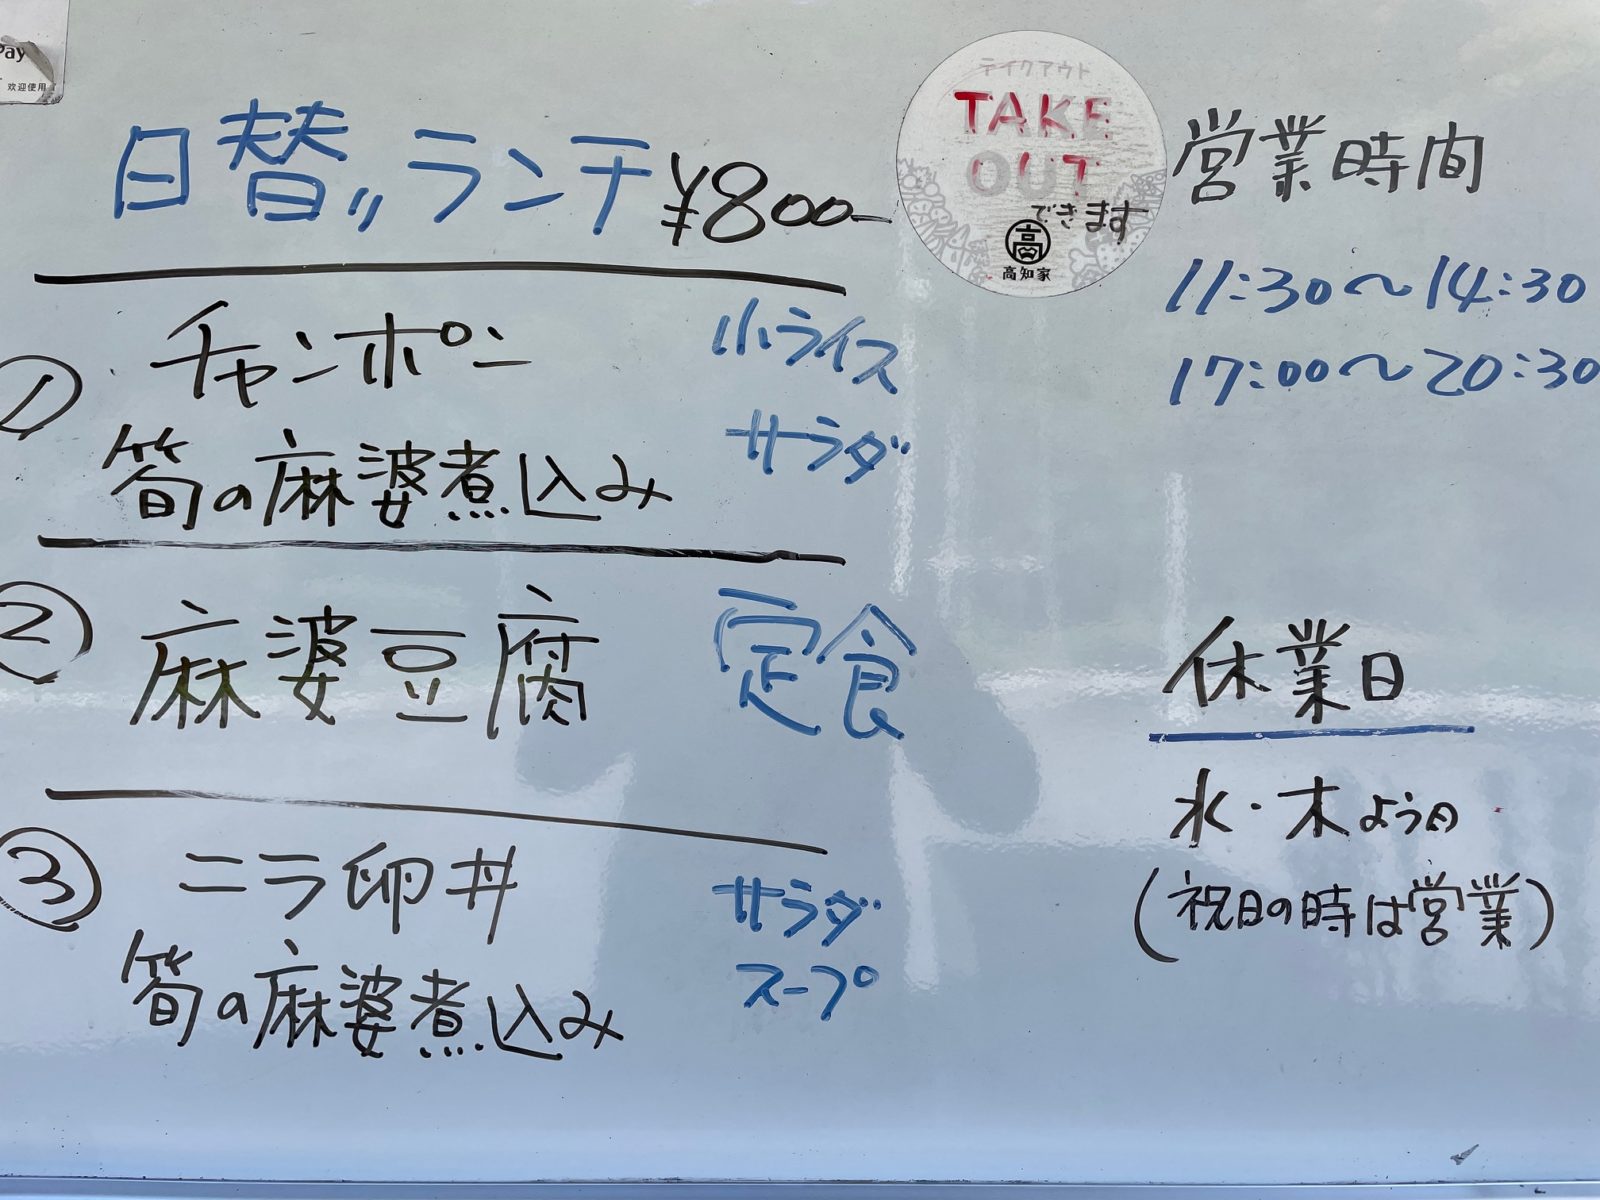 Pay
欢迎使用
日替リランチ ¥800-
① チャンポン 小ライス
サラダ
筍の麻婆煮込み
② 麻婆豆腐 定食
③ ニラ卵丼 サラダ
筍の麻婆煮込み スープ
テイクアウト
TAKE
OUT
できます
高
高知家
営業時間
11:30〜14:30
17:00〜20:30
休業日
水・木よう日
(祝日の時は営業)